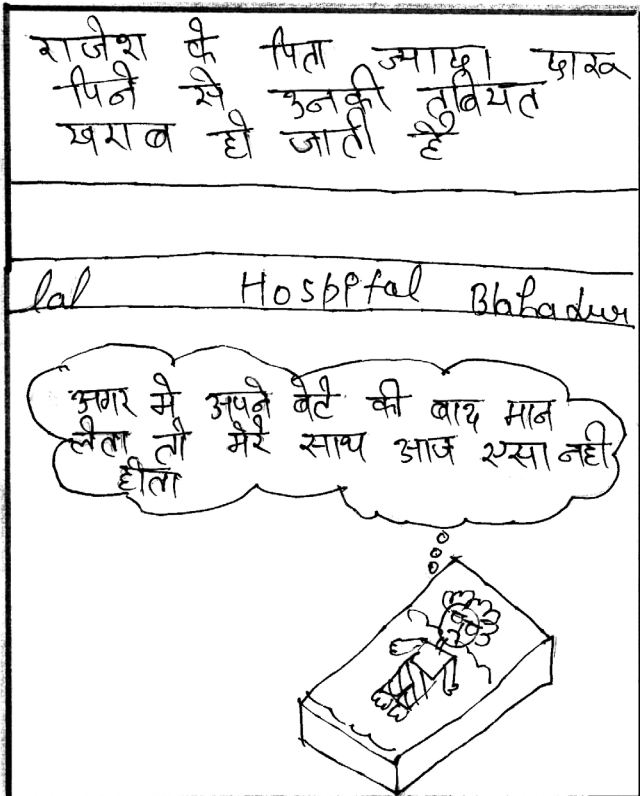 राजेश के पिता ज्यादा दारू
पिने से उनकी तबियत
खराब हो जाती है
lal Hospital Bahadur
अगर मे अपने बेटे की बाद मान
लेता तो मेरे साथ आज एसा नही
होता